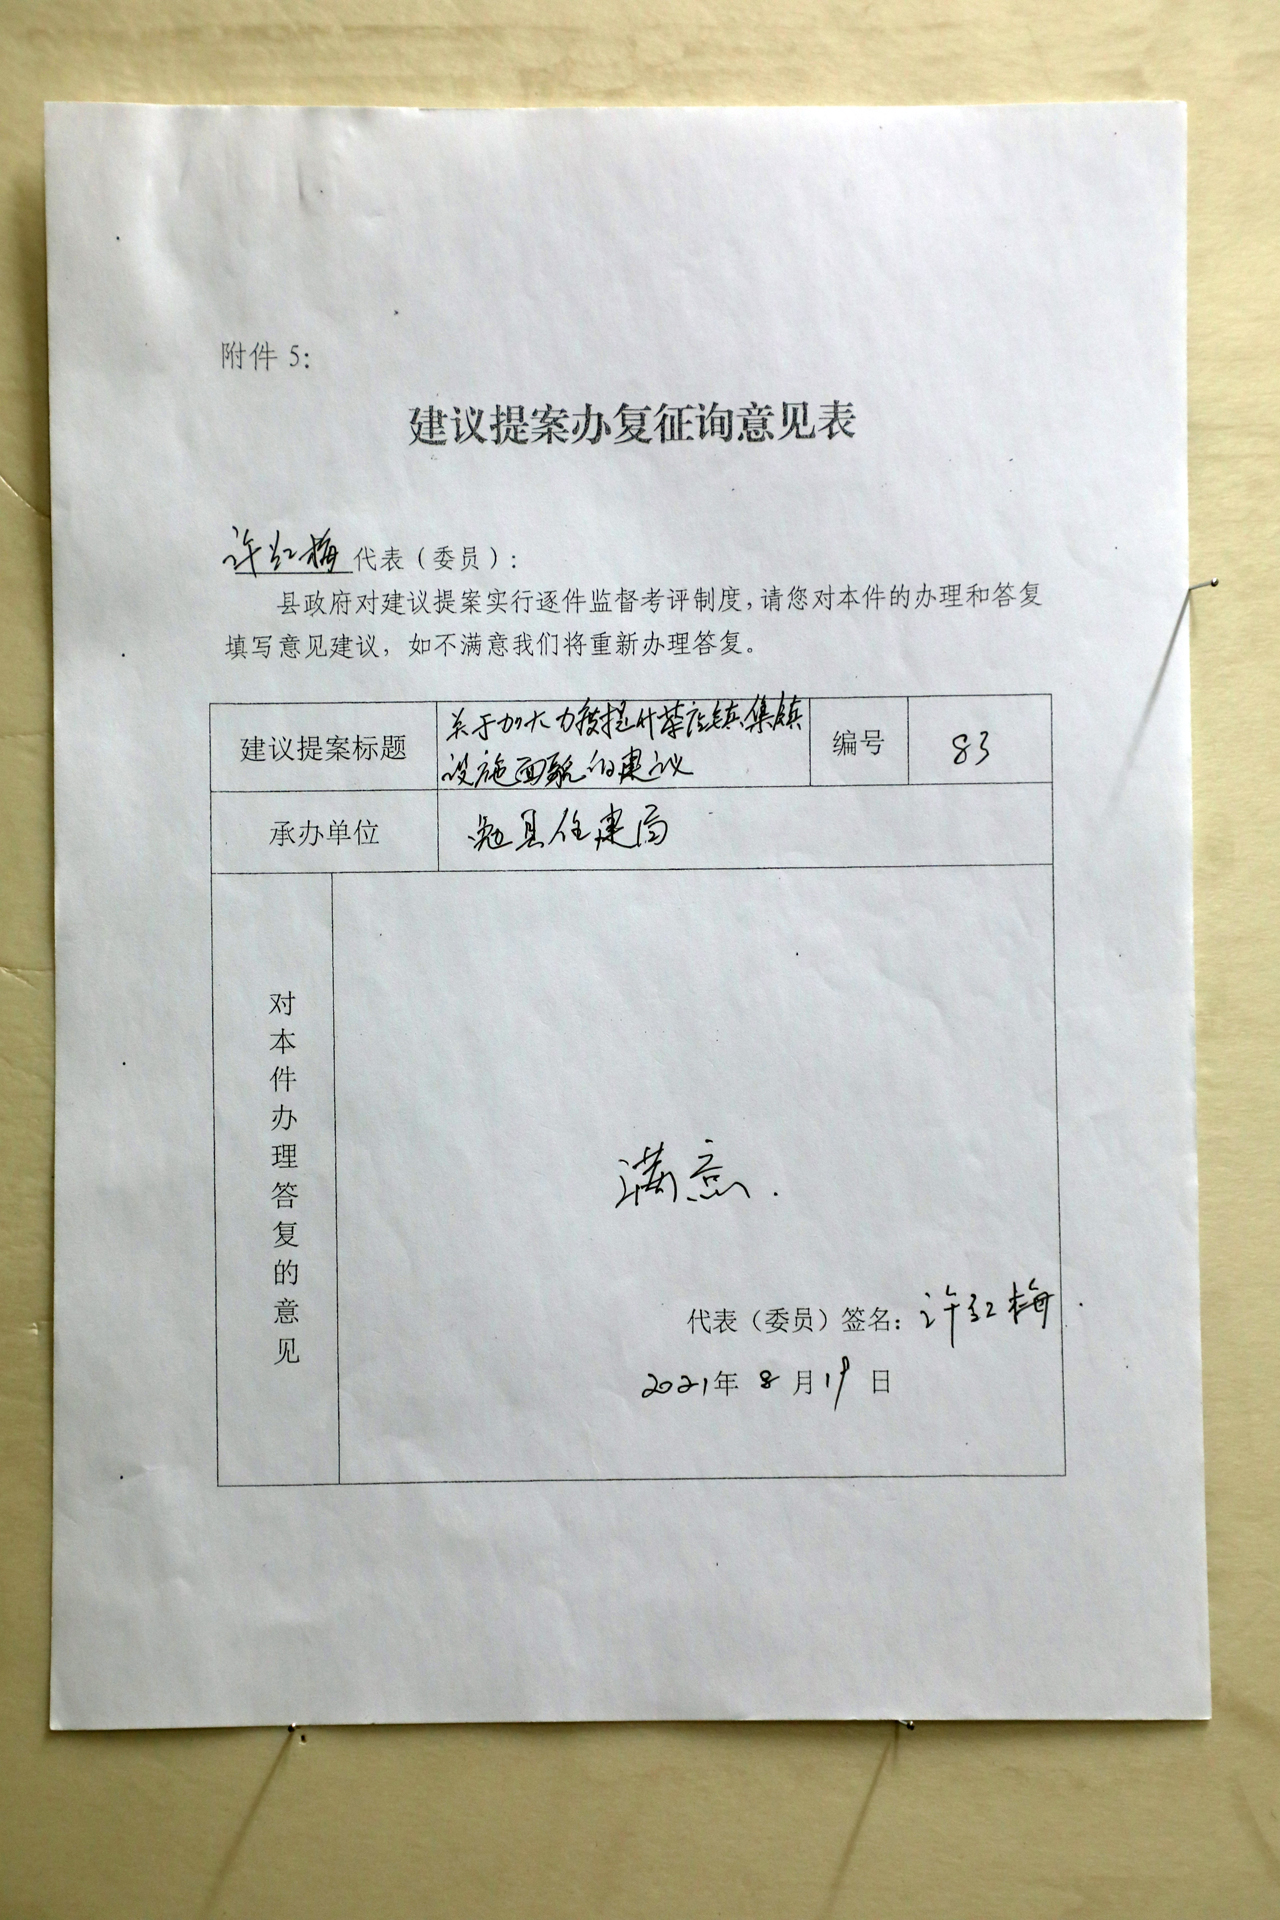 附件 5：
建议提案办复征询意见表
许红梅 代表（委员）：
县政府对建议提案实行逐件监督考评制度，请您对本件的办理和答复
填写意见建议，如不满意我们将重新办理答复。
建议提案标题
关于加大力度提升茶店镇集镇
设施面貌的建议
编号
83
承办单位
勉县住建局
对本件办理答复的意见
满意.
代表（委员）签名：许红梅.
2021年 8 月 19 日